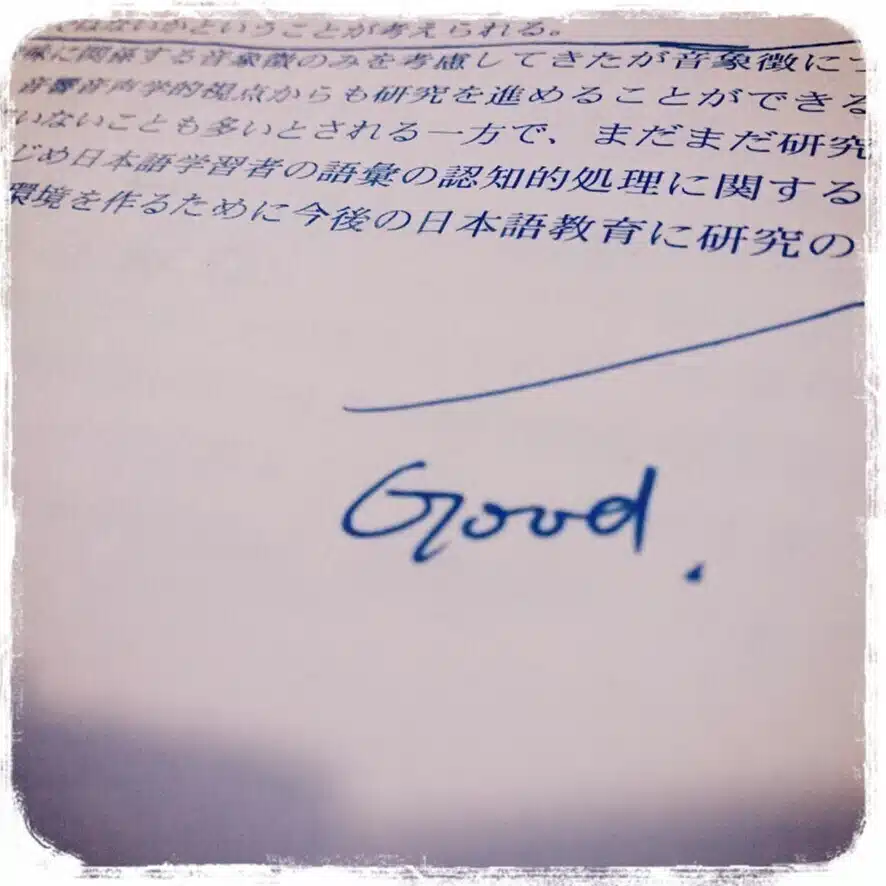 ではないかということが考えられる。
味に関係する音象徴のみを考慮してきたが音象徴につ
音響音声学的視点からも研究を進めることができる
いないことも多いとされる一方で、まだまだ研究
じめ日本語学習者の語彙の認知的処理に関する
環境を作るために今後の日本語教育に研究の
Good.